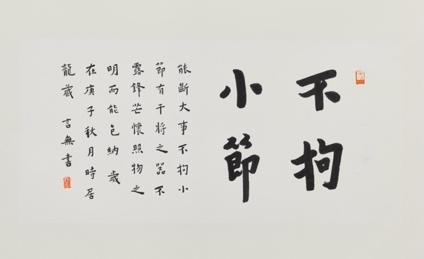 不拘
小節
能斷大事不拘小
節有干將之器不
露鋒芒懷照物之
明而能包納 歲
在庚子秋月時居
龍歲 言無書